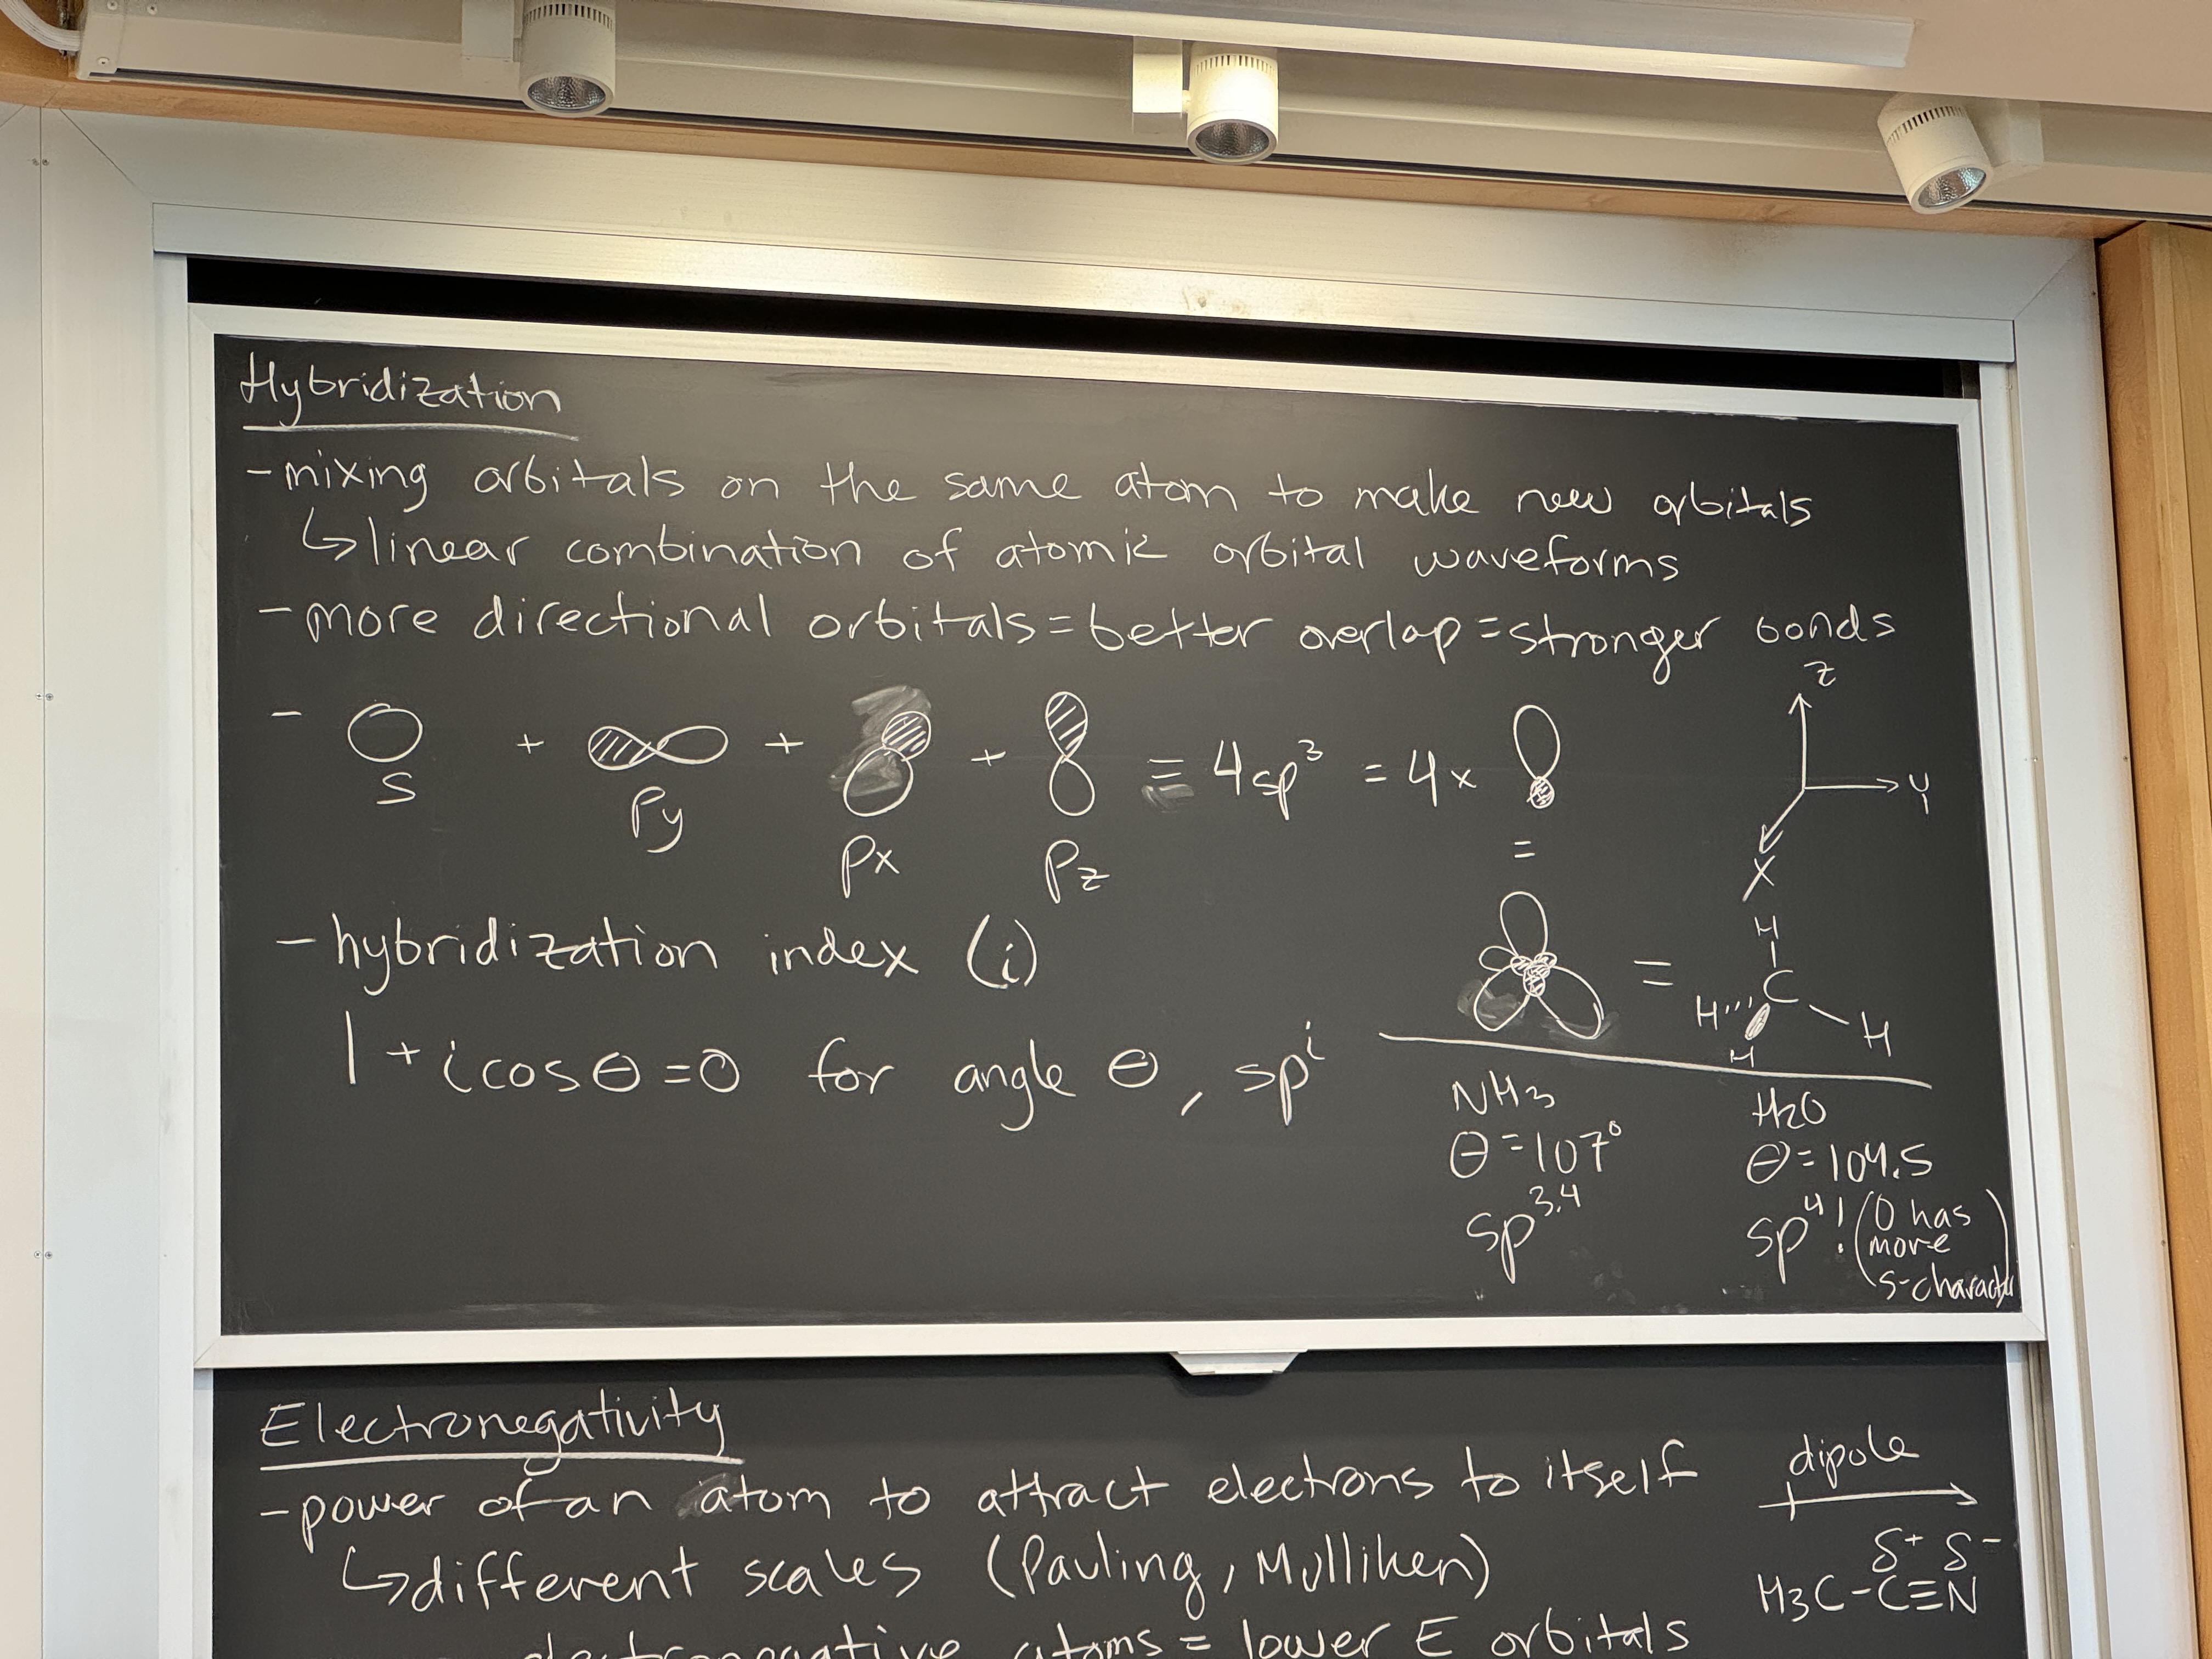 Hybridization
- mixing orbitals on the same atom to make new orbitals
↳ linear combination of atomic orbital waveforms
- more directional orbitals = better overlap = stronger bonds
- s + py + px + pz ≡ 4sp³ = 4x
=
z
y
x
- hybridization index (i)
1 + i cos θ = 0 for angle θ, spⁱ
=
H
C
H
H
H
NH3
θ = 107°
sp³·⁴
H2O
θ = 104.5
sp⁴! (O has
more
s-character
Electronegativity
- power of an atom to attract electrons to itself
↳ different scales (Pauling, Mulliken)
electronegative atoms = lower E orbitals
dipole
δ+ δ-
H3C-C≡N